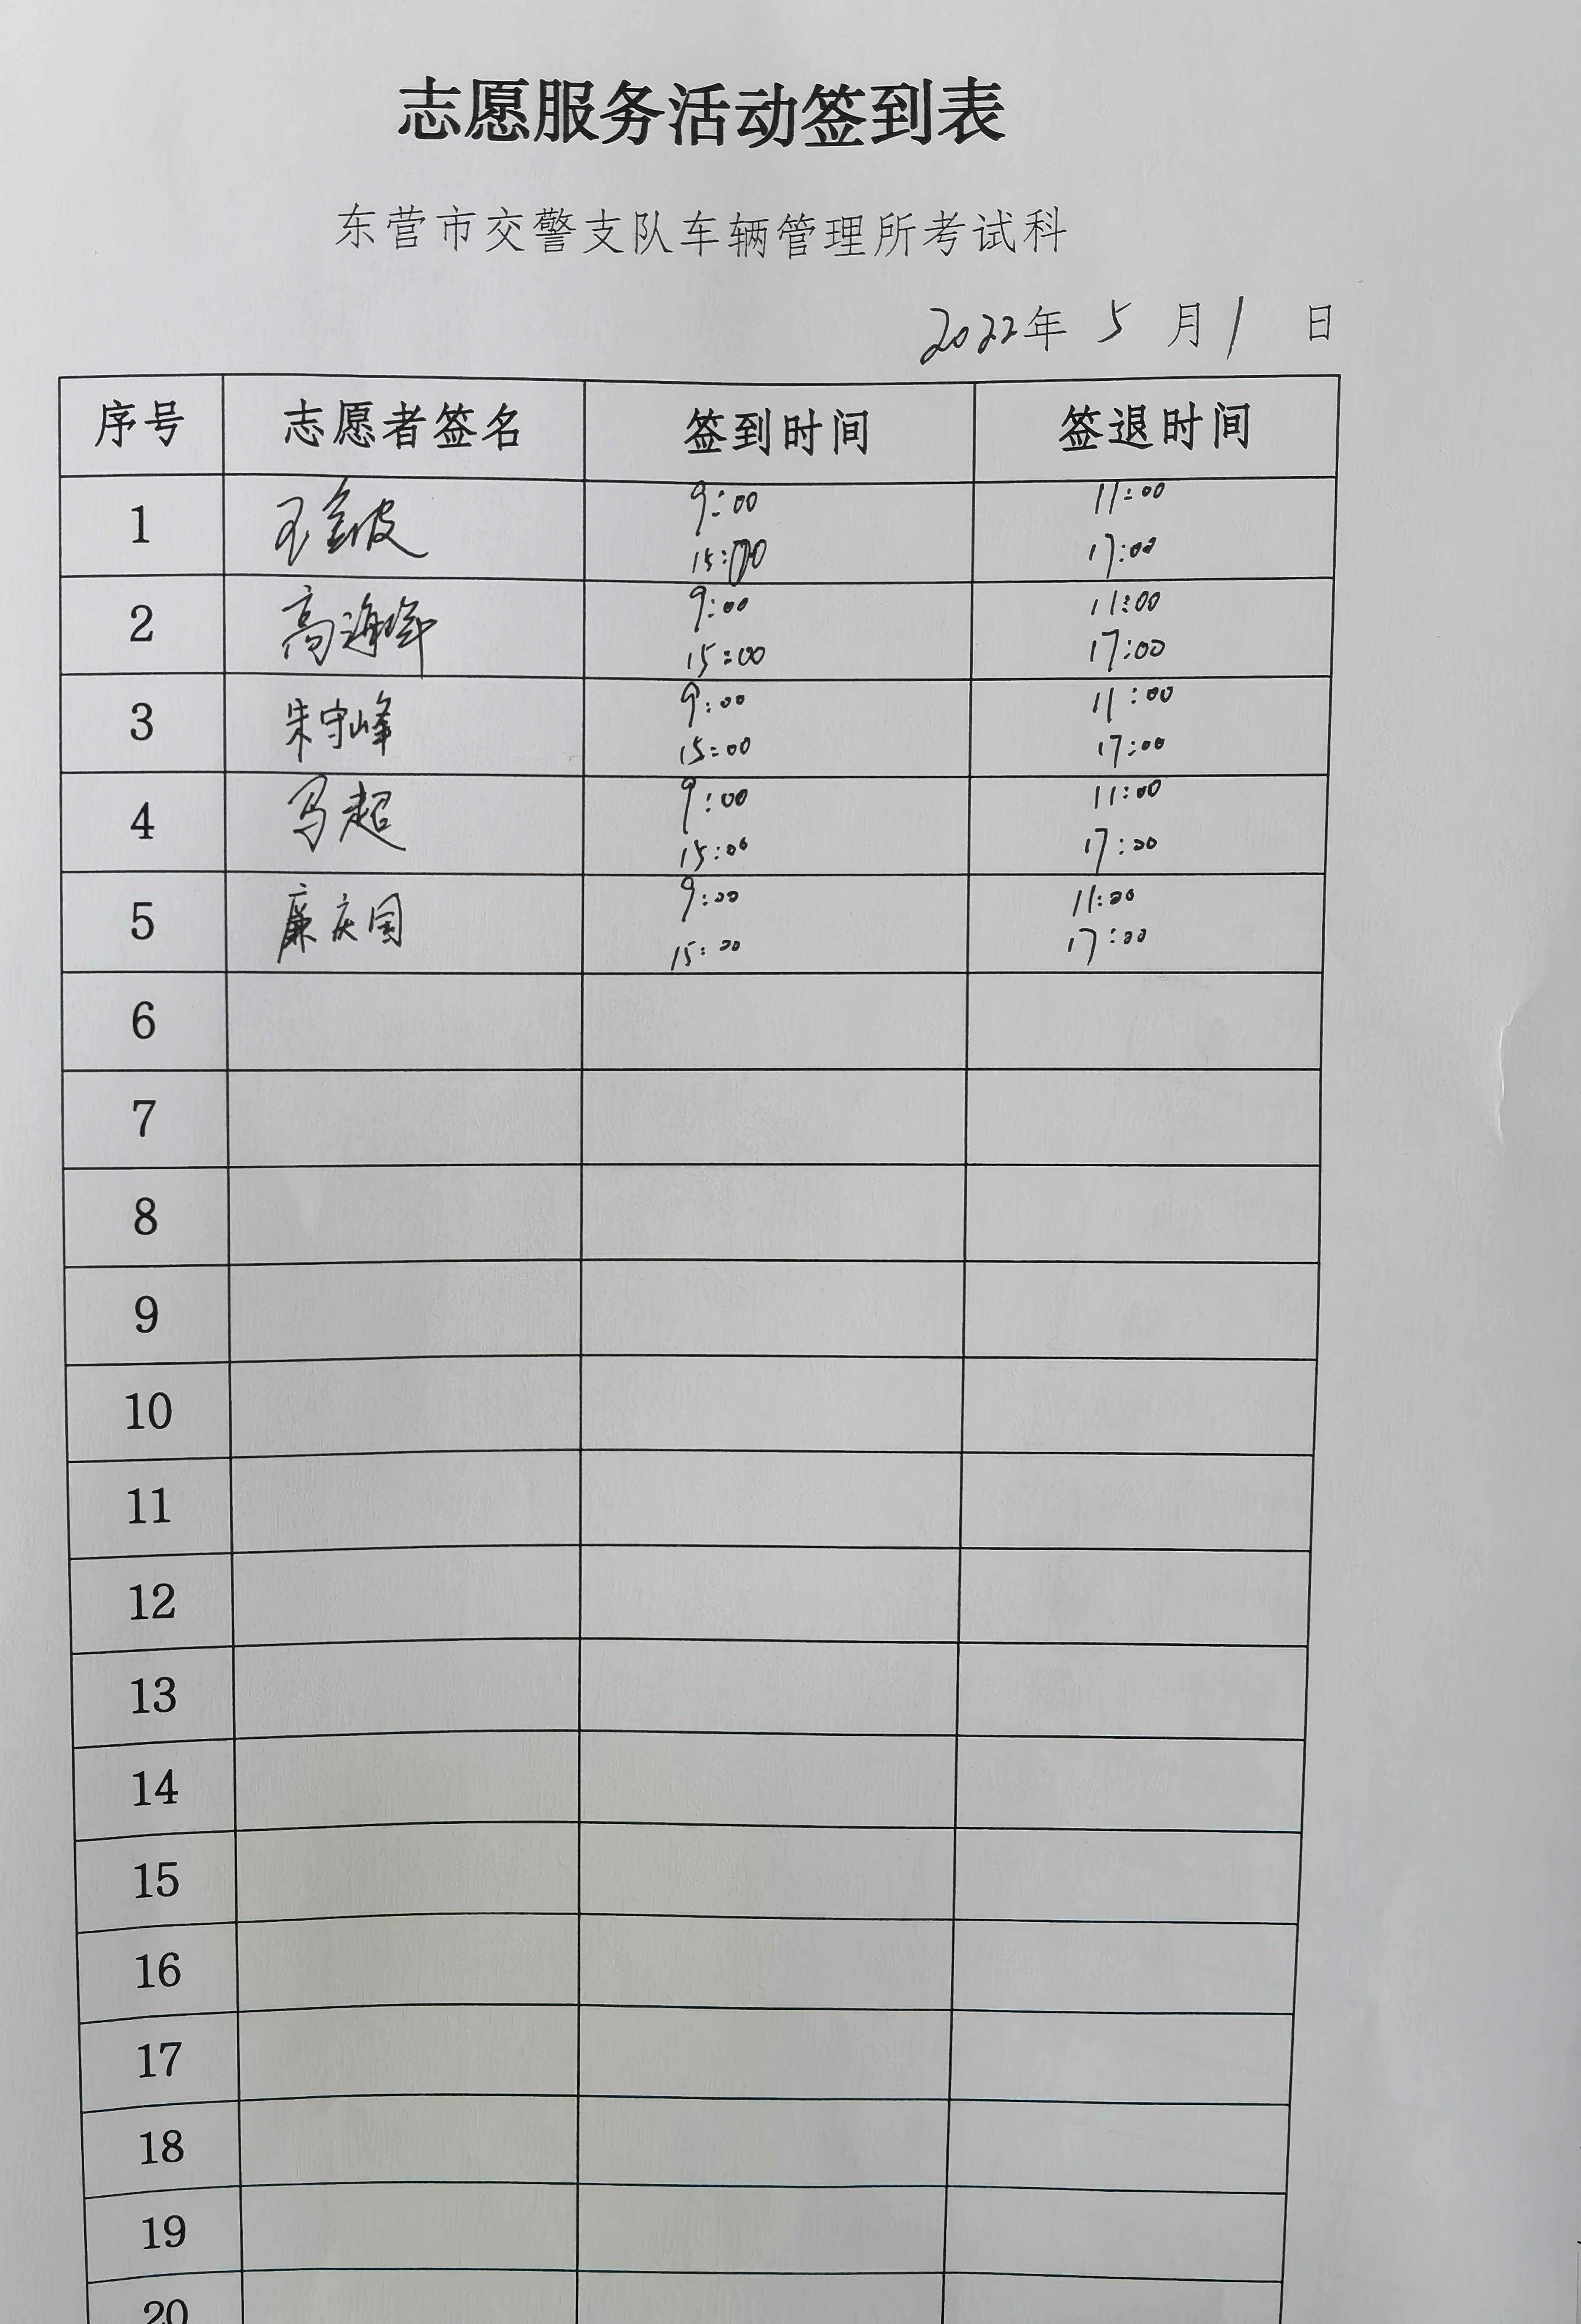 志愿服务活动签到表
东营市交警支队车辆管理所考试科
2022年 5 月 1 日
序号 志愿者签名 签到时间 签退时间
1 王金波 9:00 11:00
15:00 17:00
2 高海峰 9:00 11:00
15:00 17:00
3 朱守峰 9:00 11:00
15:00 17:00
4 马超 9:00 11:00
15:00 17:00
5 廉庆国 9:00 11:00
15:00 17:00
6
7
8
9
10
11
12
13
14
15
16
17
18
19
20